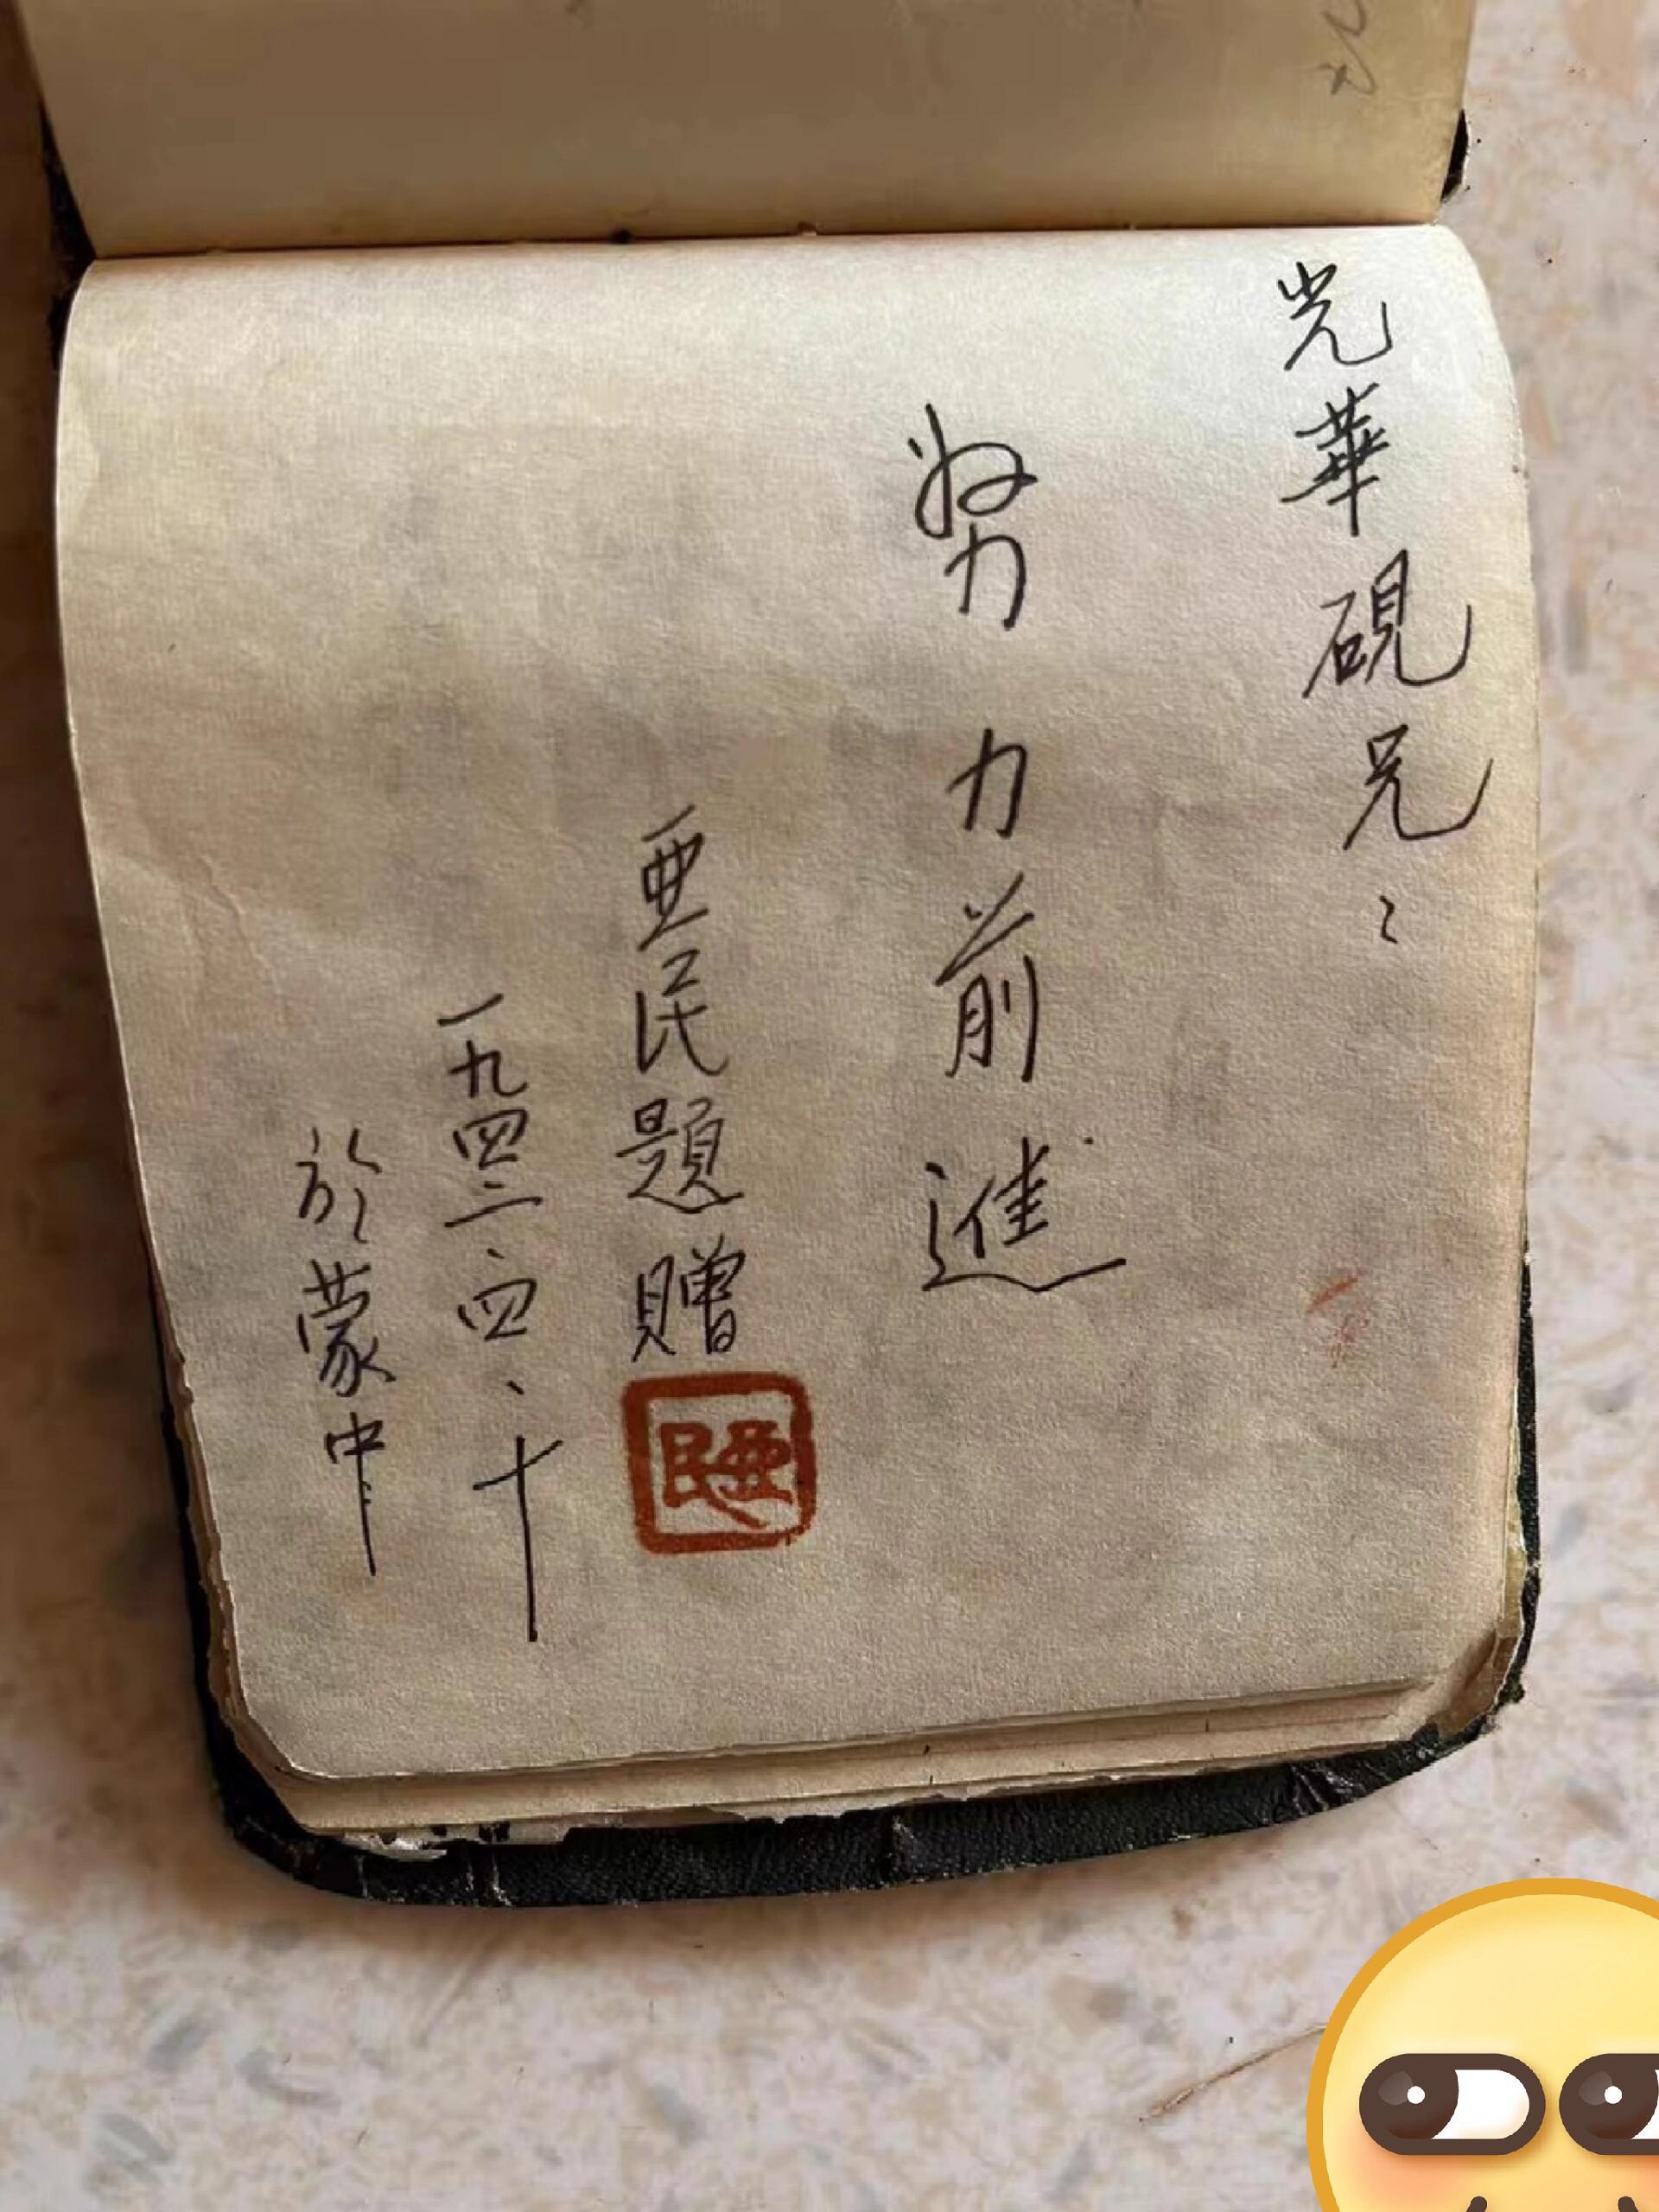 光華硯兄：
努力前進
亜民題贈
亜民
一九四二、四、十
於蒙中